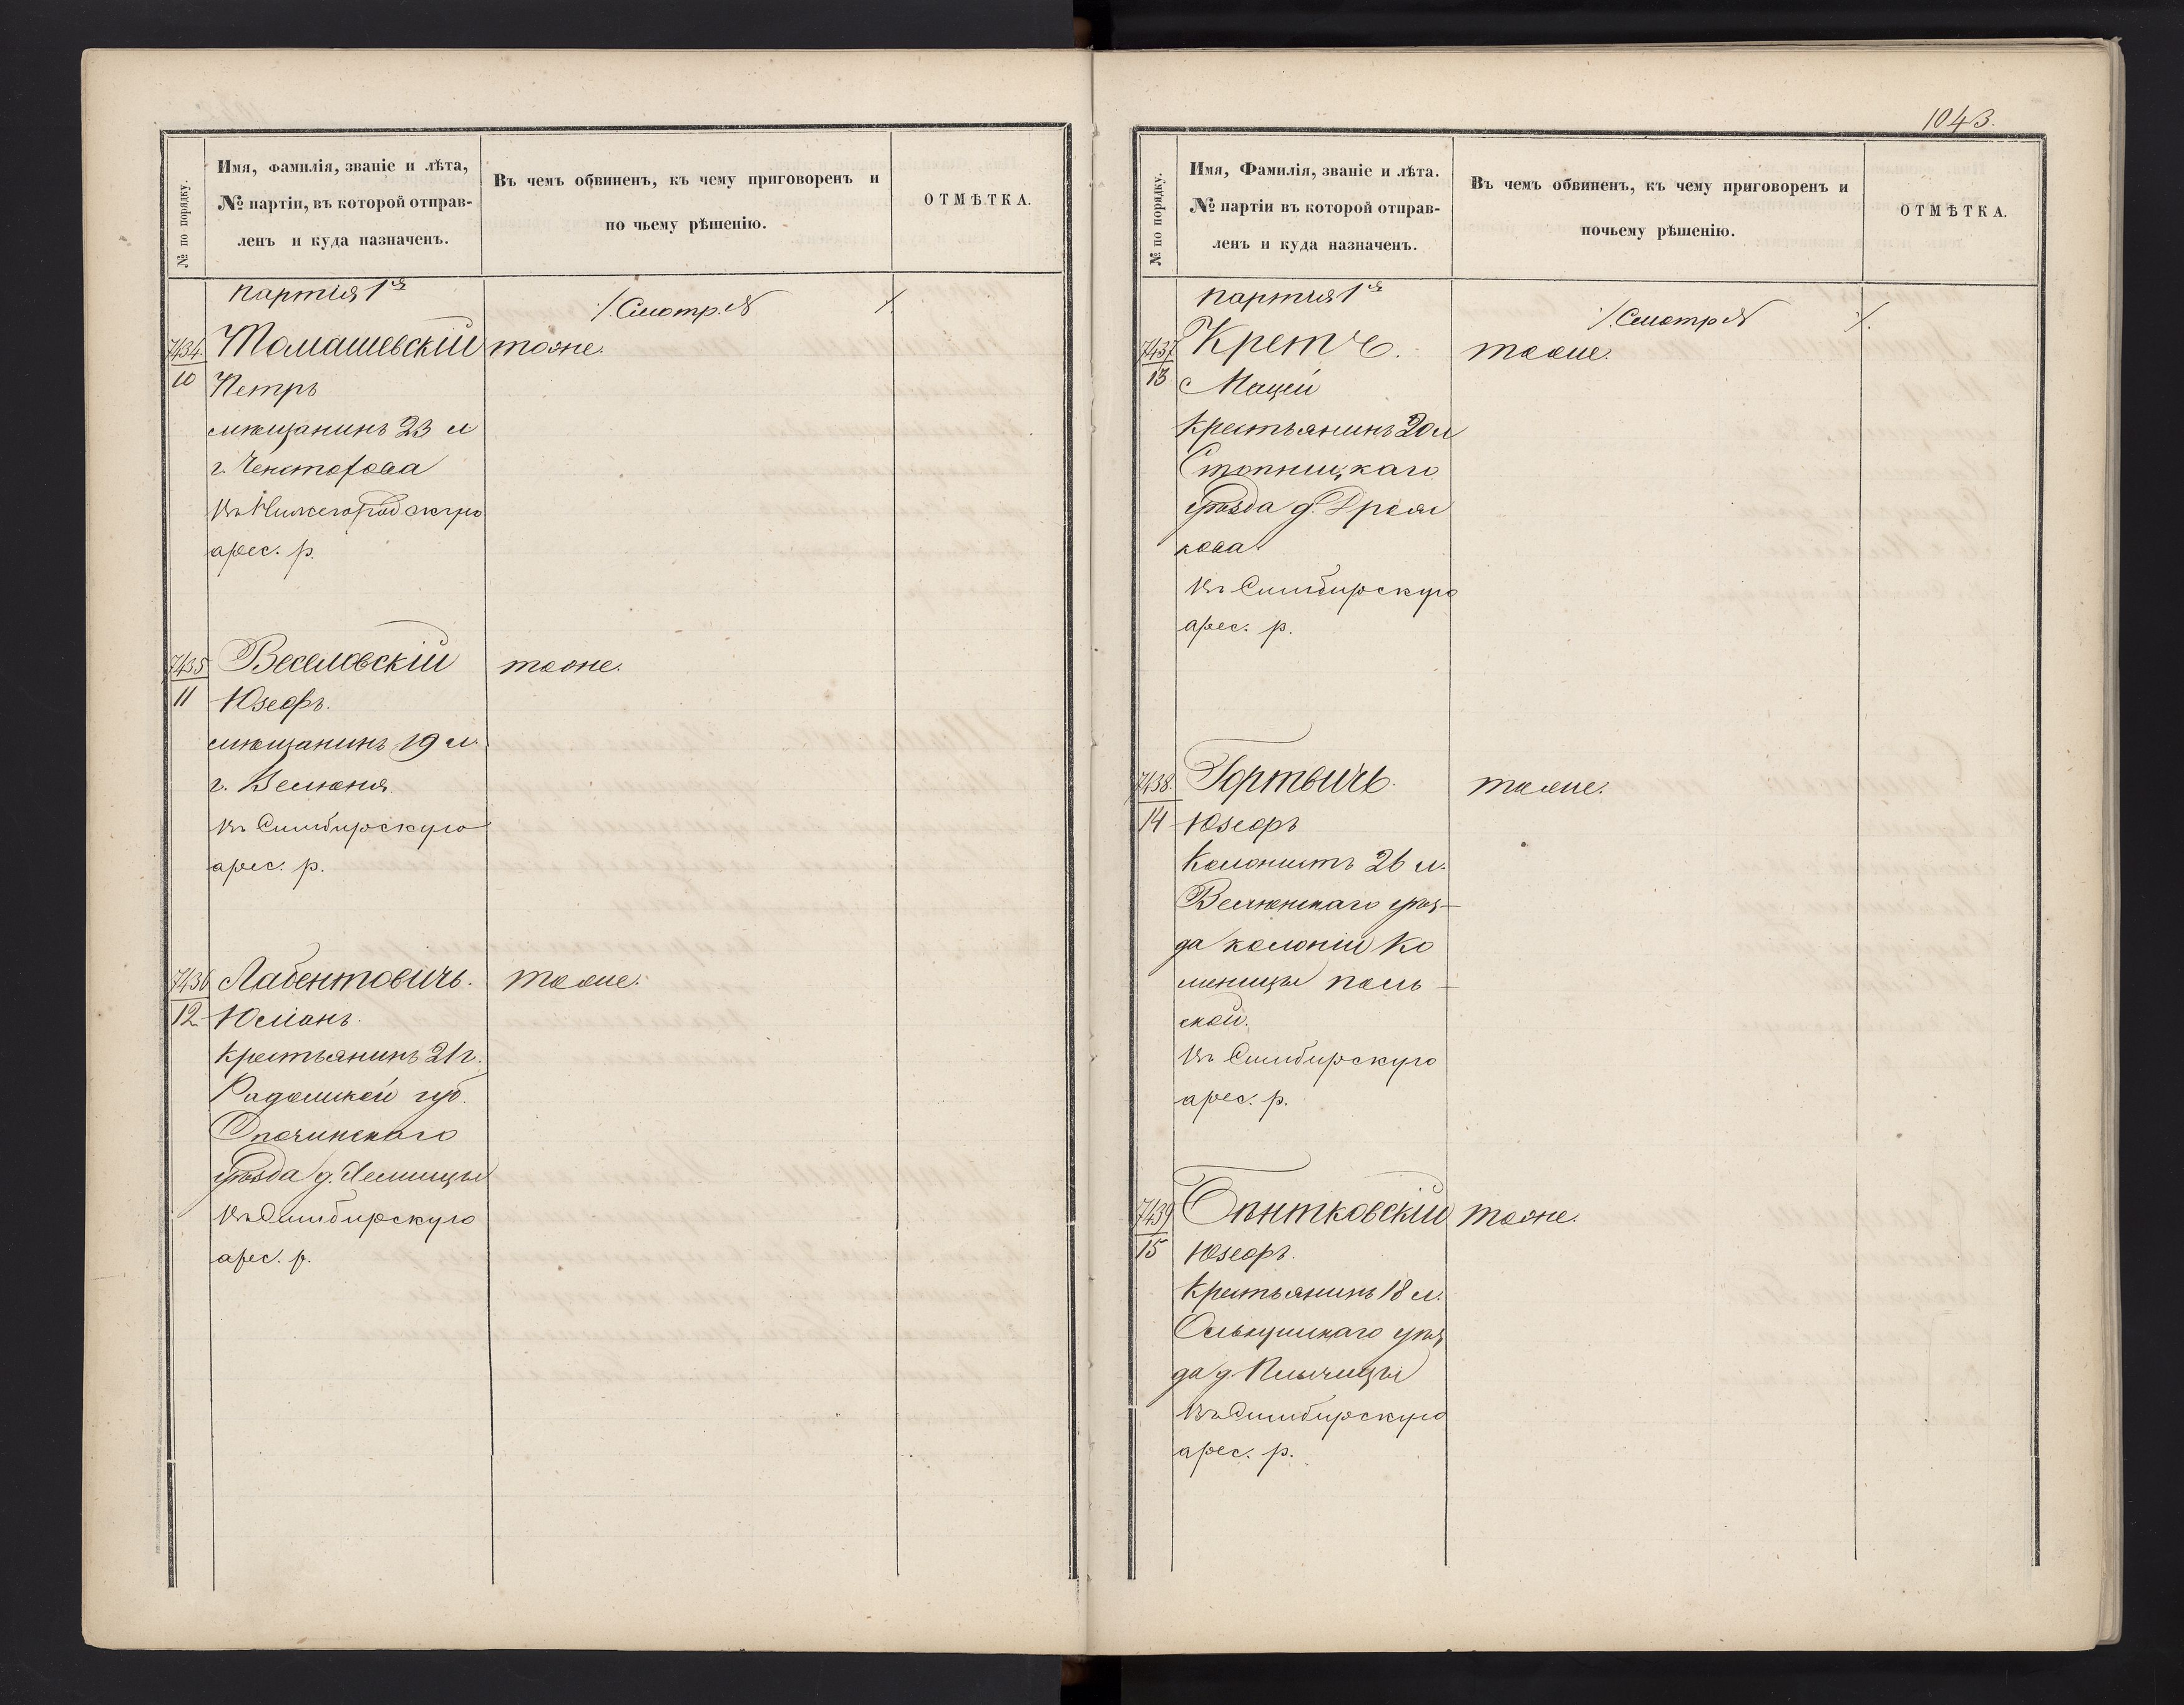 № по порядку.
Имя, фамилія, званіе и лѣта,
№ партіи, въ которой отправ-
ленъ и куда назначенъ.
Въ чемъ обвиненъ, къ чему приговоренъ и
по чьему рѣшенію.
ОТМѢТКА.
партія 1я
/. Смотр. №
/.
7434.
10
Томашевскій
тоже.
Петръ
мѣщанинъ 23 л
г. Ченстохова
Въ Нижегородскую
арес. р.
7435
11
Веселовскій
тоже.
Юзефъ.
мѣщанинъ 19 л.
г. Велюня
въ Симбирскую
арес. р.
7436
12
Лабентовичъ.
тоже.
Юліанъ.
крестьянинъ 21 г.
Радомской губ.
Опочинскаго
уѣзда д.
Въ Симбирскую
арес. р.
1043.
№ по порядку.
Имя, Фамилія, званіе и лѣта.
№ партіи въ которой отправ-
ленъ и куда назначенъ.
Въ чемъ обвиненъ, къ чему приговоренъ и
почьему рѣшенію.
ОТМѢТКА.
партія 1я
/. Смотр №
/.
7437
13
Кретъ.
тоже.
Мацей
крестьянинъ 20 л
Стопницкаго
уѣзда д.
кова.
Въ Симбирскую
арес. р.
7438.
14
Гортвичъ.
тоже.
Юзефъ
Колонистъ 26 л.
Велюнскаго уѣз-
да колоніи Ко
меницы поль-
ской.
Въ Симбирскую
арес. р.
7439
15
тоже.
Юзефъ.
Крестьянинъ 18 л.
Олькушскаго уѣз
да д.
Въ Симбирскую
арес. р.